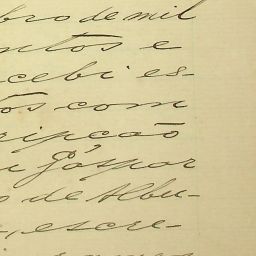 bro de mil
ntos e
cebi es-
tos com
ripcão
u Gaspar
o de Albu-
, escre-